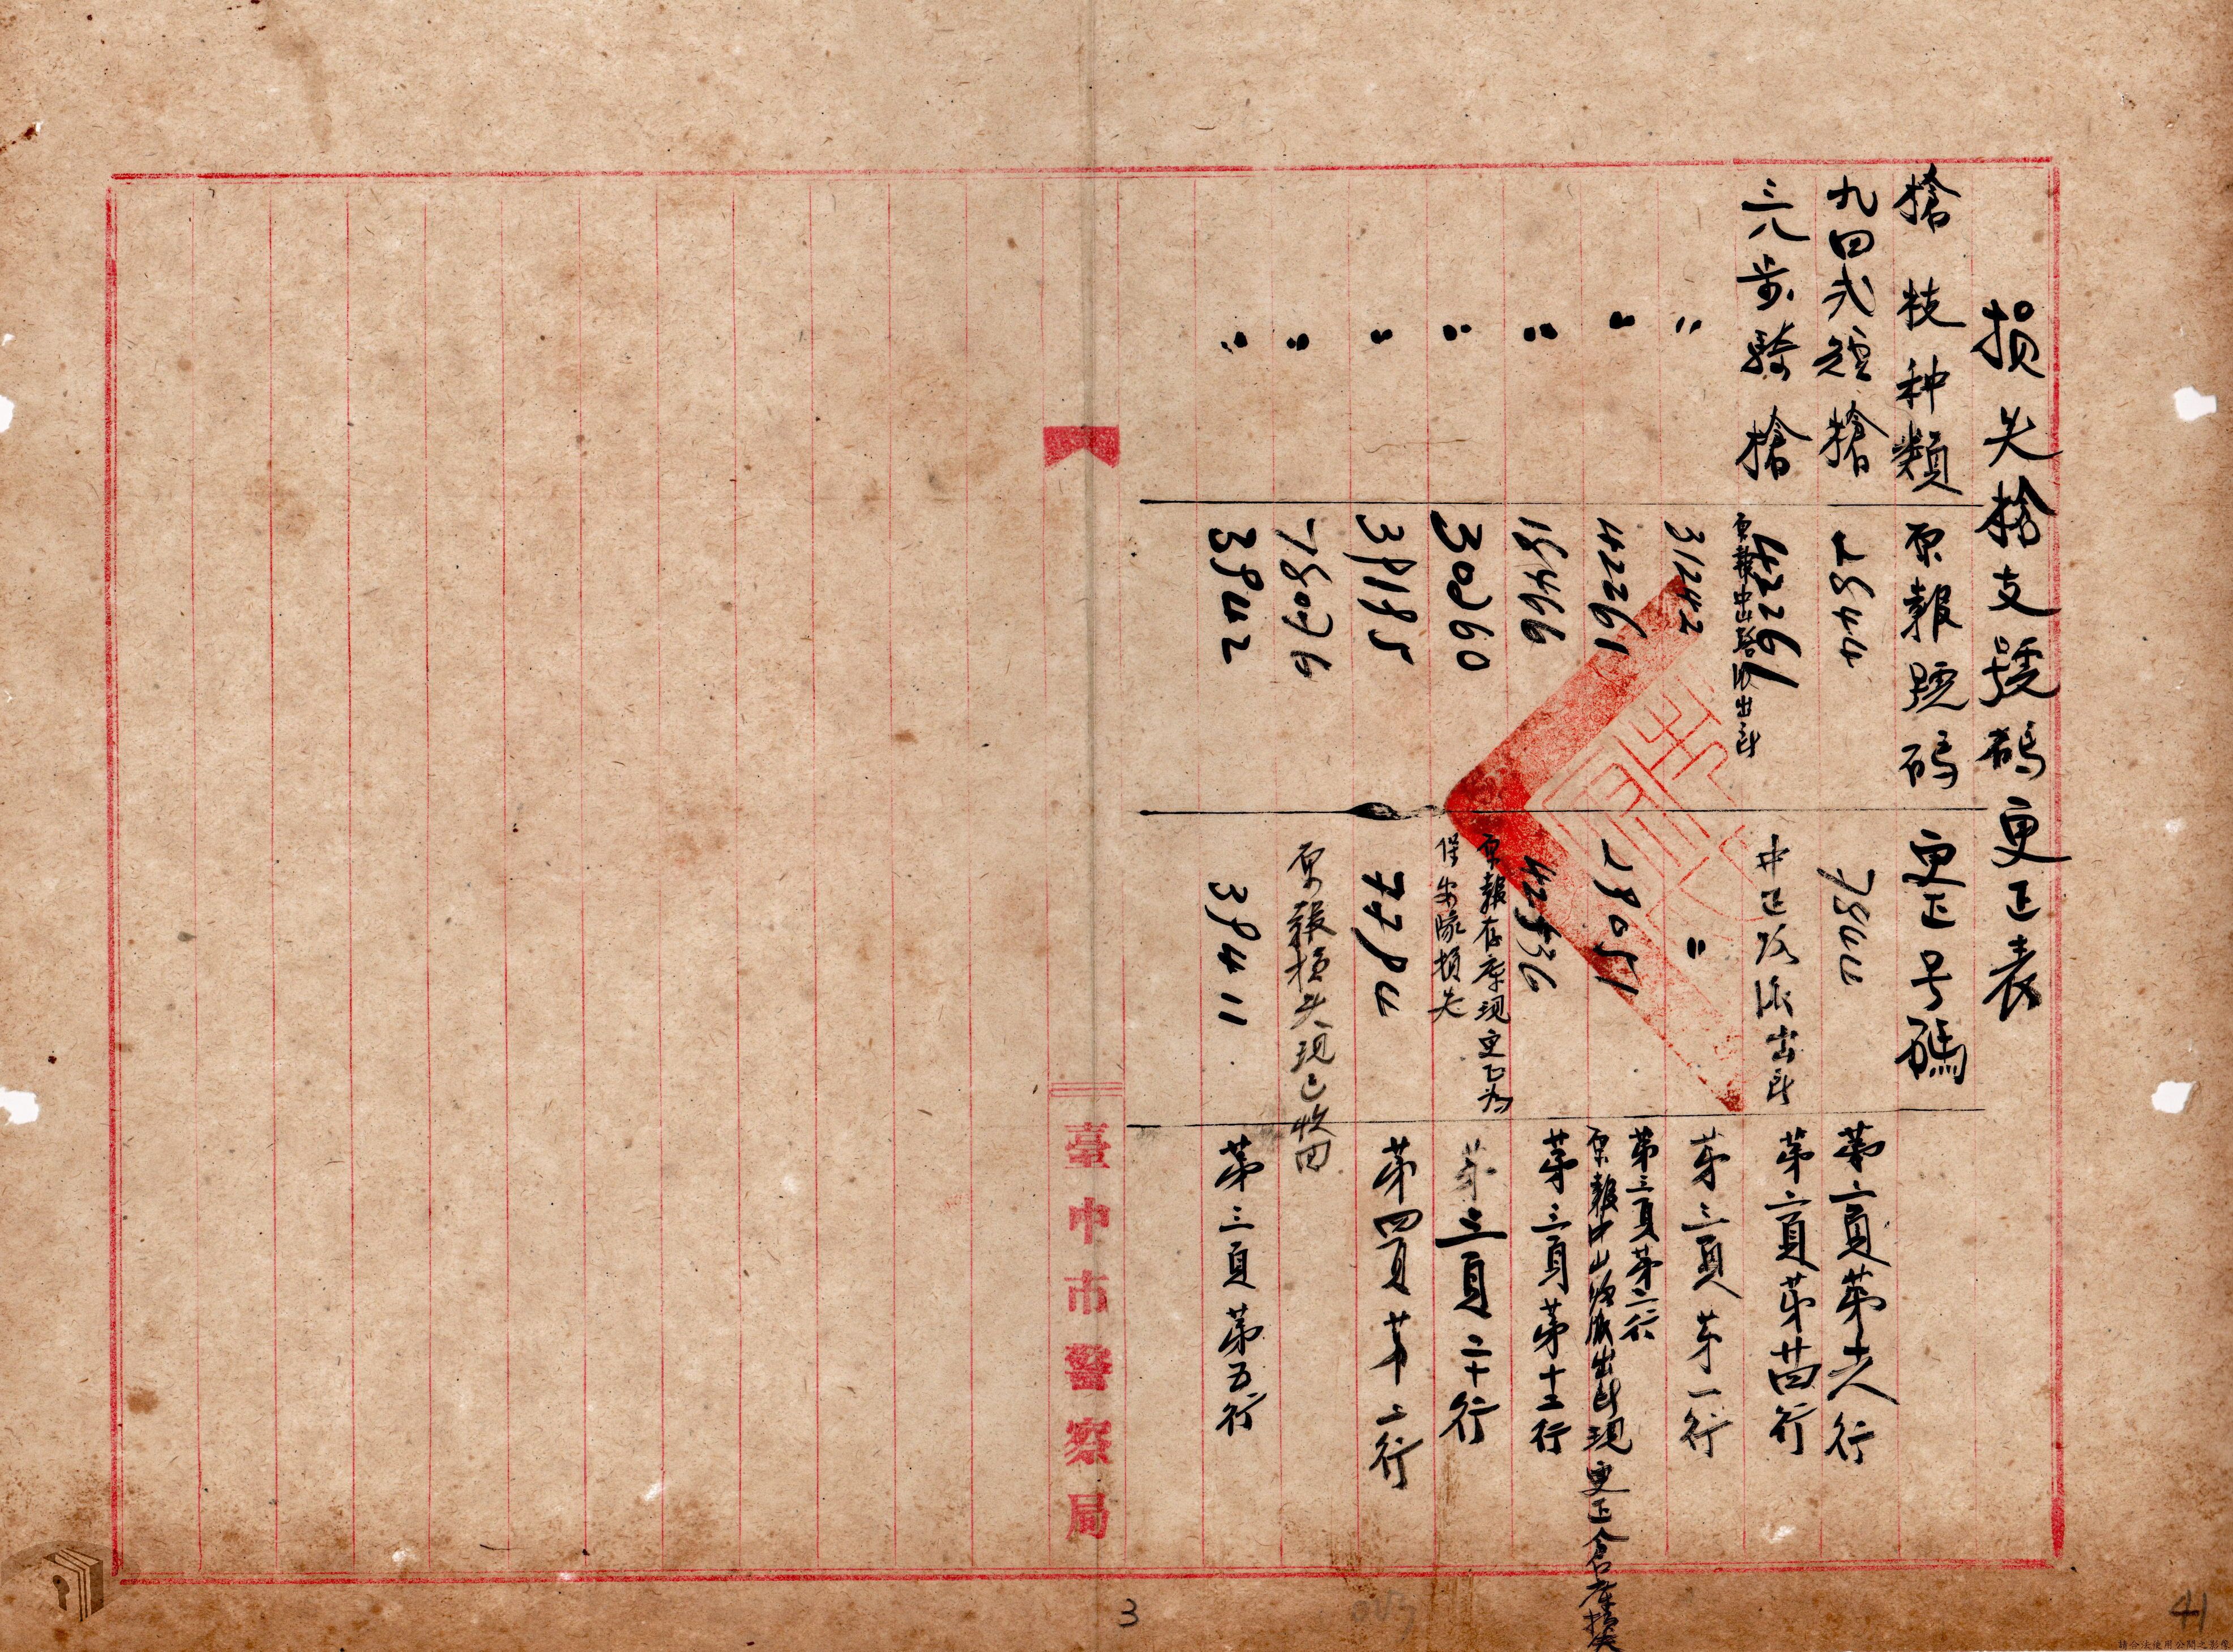 損失槍支號碼更正表
槍枝种類 原報號碼 更正号碼
九四式短槍
三八步騎槍 42261 中正路派出所 第二頁第廿四行
〃 31242 〃 第三頁第一行
〃 42261 第三頁第二行
原報中山路派出所現更正倉庫損失
〃 18466 第三頁第十二行
〃 30960 原報存庫現更正為
保安隊損失 第三頁二十行
〃 39185 第四頁第二行
〃 原報損失現已收回
〃 39411 第三頁第五行
臺中市警察局
3
41